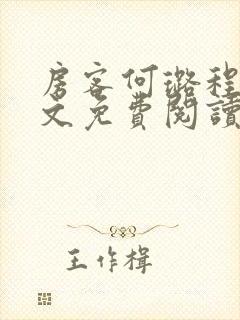 房客何璐程
文免費閱讀
王作楫